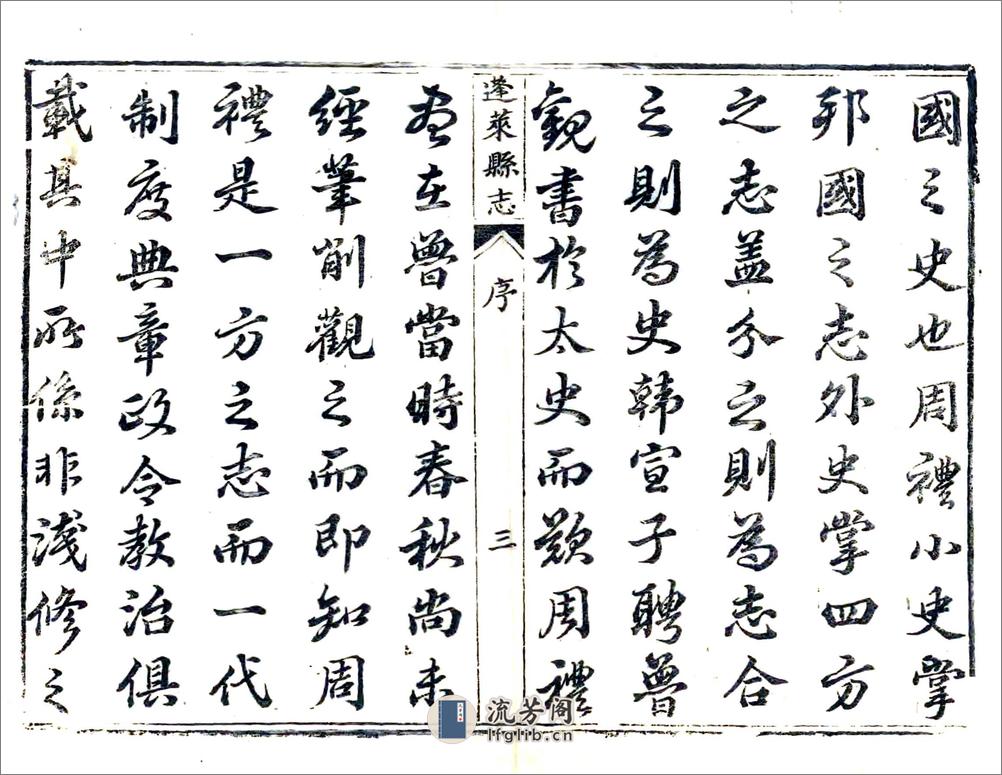 國之史也周禮小史掌
邦國之志外史掌四方
之志蓋分之則為志合
之則為史韓宣子聘魯
觀書於太史而歎周禮
蓬萊縣志
序
三
盡在魯當時春秋尚未
經筆削觀之而即知周
禮是一方之志而一代
制度典章政令教治俱
載其中所係非淺修之
流芳阁
lfglib.cn